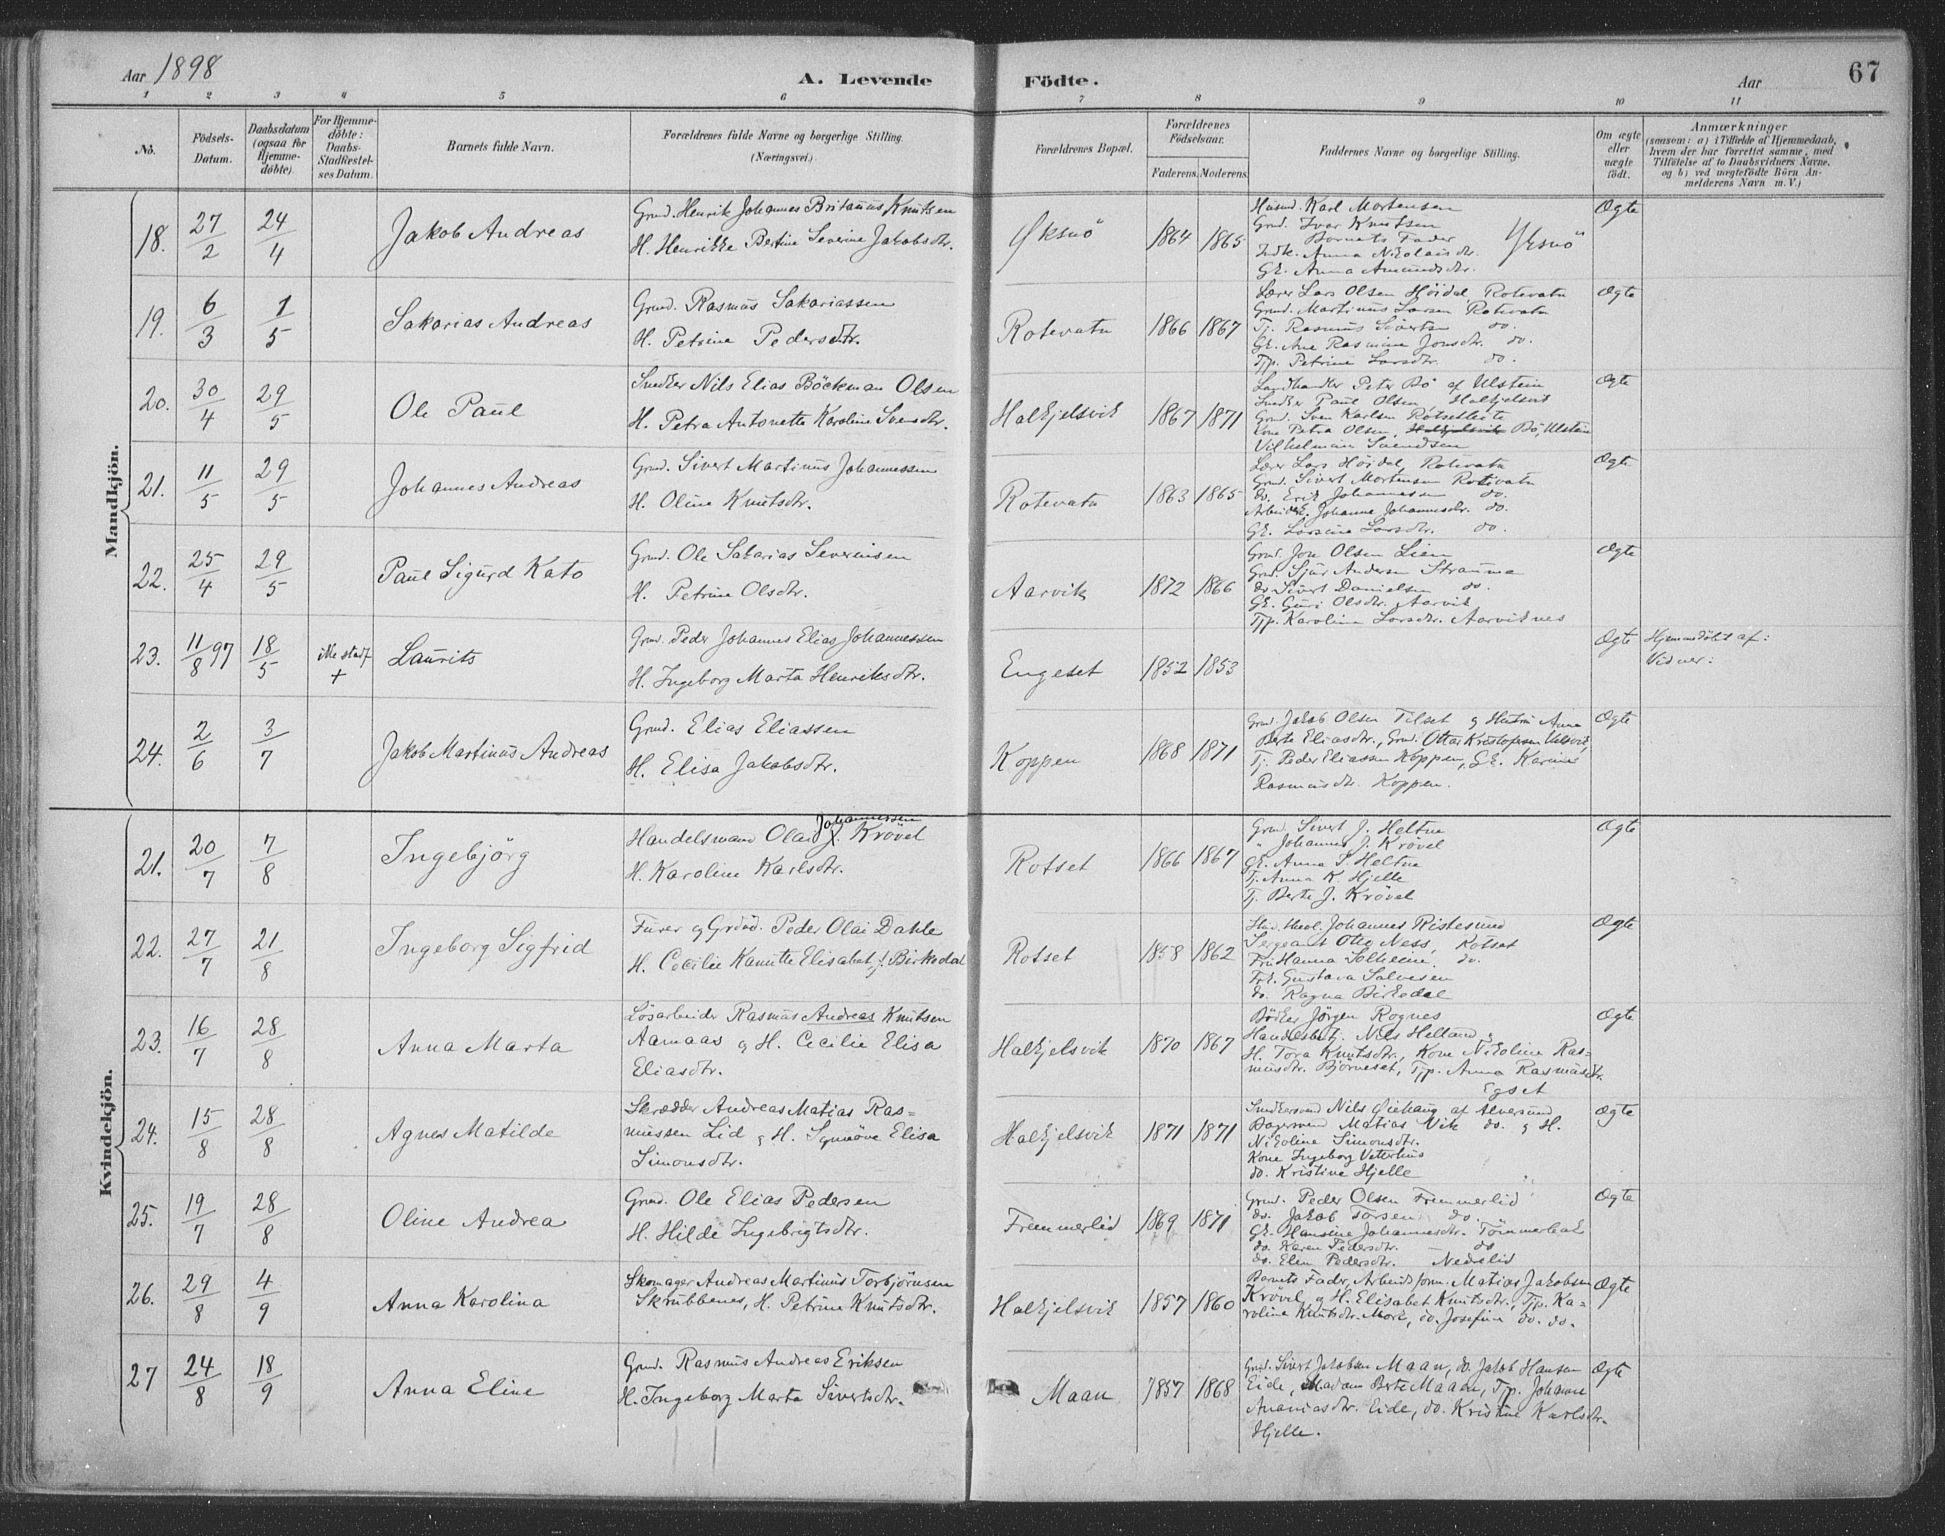 Aar 1898
A. Levende
Födte.
Aar
67
1 2 3 4 5 6 7 8 9 10 11
No.
Födsels-
Datum.
Daabsdatum
(ogsaa for
Hjemme-
döbte).
For Hjemme-
döbte:
Daabs-
Stadfæstel-
ses Datum.
Barnets fulde Navn.
Forældrenes fulde Navne og borgerlige Stilling.
(Næringsvei).
Forældrenes Bopæl.
Forældrenes
Födselsaar.
Faderens. Moderens.
Faddernes Navne og borgerlige Stilling.
Om ægte
eller
uægte
födt.
Anmærkninger
(saasom: a) i Tilfælde af Hjemmedaab,
hvem der har forrettet samme, med
Tilföielse af to Daabsvidners Navne,
og b) ved uægtefödte Börn An-
melderens Navn m. V.)
Mandkjön.
18. 27/2 24/4 Jakob Andreas
Grmd. Henrik Johannes Britanus Knutsen
H. Henrikke Bertine Severine Jakobsdtr.
Yksnö 1864 1865
Husmd. Karl Mortensen
Grmd. Ivar Knutsen
Barnets Fader Yksnö
Indk. Anna Nikolaisdtr.
GE. Anna Amundsdtr.
Ægte
19. 6/3 1/5 Sakarias Andreas
Grmd. Rasmus Sakariassen
H. Petrine Pedersdtr.
Rotevatn 1866 1867
Lærer Lars Olsen Höidal, Rotevatn
Grmd. Martinus Larsen Rotevatn
Tj. Rasmus Sivertsen do.
GE. Ane Rasmine Jonsdtr. do.
Tjp. Petrine Larsdtr. do.
Ægte
20. 30/4 29/5 Ole Paul
Snedker Nils Elias Böckman Olsen
H. Petra Antonette Karoline Svensdtr.
Halkjelsvik 1867 1871
Landhandler Peter Bö af Ulstein
Snedker Paul Olsen, Halkjelsvik
Grmd. Sven Karlsen Rotsethleite
Kone Petra Olsen, Halkjelsvik Bö, Ulstein
Vilhelmine Svendsen
Ægte
21. 11/5 29/5 Johannes Andreas
Grmd. Sivert Martinus Johannessen
H. Oline Knutsdtr.
Rotevatn 1863 1865
Lærer Lars Höidal, Rotevatn
Grmd. Sivert Mortensen Rotevatn
do. Erik Johannesen do.
Arbeidsk. Johanne Johannesdtr. do.
GE. Larsine Larsdtr. do.
Ægte
22. 25/4 29/5 Paul Sigurd Kato
Grmd. Ole Sakarias Severinsen
H. Petrine Olsdtr.
Aarvik 1872 1866
Grmd. Jon Olsen Lien
Grmd. Sjur Andersen Strauma
do. Sivert Danielsen do.
GE. Guri Olsdtr. Aarvik
Tjp. Karoline Larsdtr. Aarviknes
Ægte
23. 11/8 97 18/5 ikke stadf. + Laurits
Grmd. Peder Johannes Elias Johannessen
H. Ingeborg Marta Henriksdtr.
Engeset 1852 1853
Ægte
Hjemmedöbt af:
Vidner:
24. 2/6 3/7 Jakob Martinus Andreas
Grmd. Elias Eliassen
H. Elisa Jakobsdtr.
Koppen 1868 1871
Grmd. Jakob Olsen Tilset og Hustru Anna
Berte Eliasdtr., Grmd. Ottar Kristofersen Ulsvik,
Tj. Peder Eliassen Koppen, GE. Karine
Rasmusdtr. Koppen.
Ægte
Kvindekjön.
21. 20/7 7/8 Ingebjörg
Johannessen
Handelsmand Olai J. Krövel
H. Karoline Karlsdtr.
Rotset 1866 1867
Grmd. Sivert J. Heltne
" Johannes J. Krövel
GE. Anna S. Heltne
Tj. Anna K. Hjelle
Tj. Berte J. Krövel
Ægte
22. 27/7 21/8 Ingeborg Sigfrid
Furer og Grdmd. Peder Olai Dahle
H. Cecilie Kanutte Elisabet f. Birkedal
Rotset 1858 1862
Stud. theol. Johannes Ristesund
Sergeant Otto Ness, Rotset
Fru Hanna Solheim, do.
Frk. Gustava Salvesen
do. Ragna Birkedal
Ægte
23. 16/7 28/8 Anna Marta
Lösarbeider Rasmus Andreas Knutsen
Aamaas og H. Cecilie Elisa
Eliasdtr.
Halkjelsvik 1870 1867
Bödker Jörgen Rognes
Handelsbetj. Nils Helland
H. Tora Knutsdtr., Kone Nikoline Ras-
musdtr. Björneset, Tjp. Anna Rasmusdtr.
Egset
Ægte
24. 15/8 28/8 Agnes Matilde
Skrædder Andreas Matias Ras-
mussen Lid og H. Synnöve Elisa
Simonsdtr.
Halkjelsvik 1871 1871
Snedkersvend Nils Öiehaug af Alversund
Bagersvend Matias Vik do. og H.
Nikoline Simonsdtr.
Kone Ingeborg Veterhus
do. Kristine Hjelle
Ægte
25. 19/7 28/8 Oline Andrea
Grmd. Ole Elias Pedersen
H. Hilde Ingebrigtsdtr.
Fremmerlid 1869 1871
Grmd. Peder Olsen Fremmerlid
do. Jakob Torsen do.
GE. Hansine Johannesdtr. Tömmerbak
do. Karen Pedersdtr. do
do. Elen Pedersdtr. Nedrelid
Ægte
26. 29/8 4/9 Anna Karolina
Skomager Andreas Martinus Torbjörnsen
Skrubbenes, H. Petrine Knutsdtr.
Halkjelsvik 1857 1860
Barnets Fader, Arbeidsform. Matias Jakobsen
Krövel, og H. Elisabet Knutsdtr., Tjp. Ka-
roline Knutsdtr. Mork, do. Josefine do. do.
Ægte
27 24/8 18/9 Anna Eline
Grmd. Rasmus Andreas Eriksen
H. Ingeborg Marta Sivertsdtr.
Maan 1857 1868
Grmd. Sivert Jakobsen Maan, do. Jakob Hansen
Eide, Madam Berte Maan, Tjp. Johanne
Ananiasdtr. Eide, do. Kristine Karlsdtr.
Hjelle.
Ægte